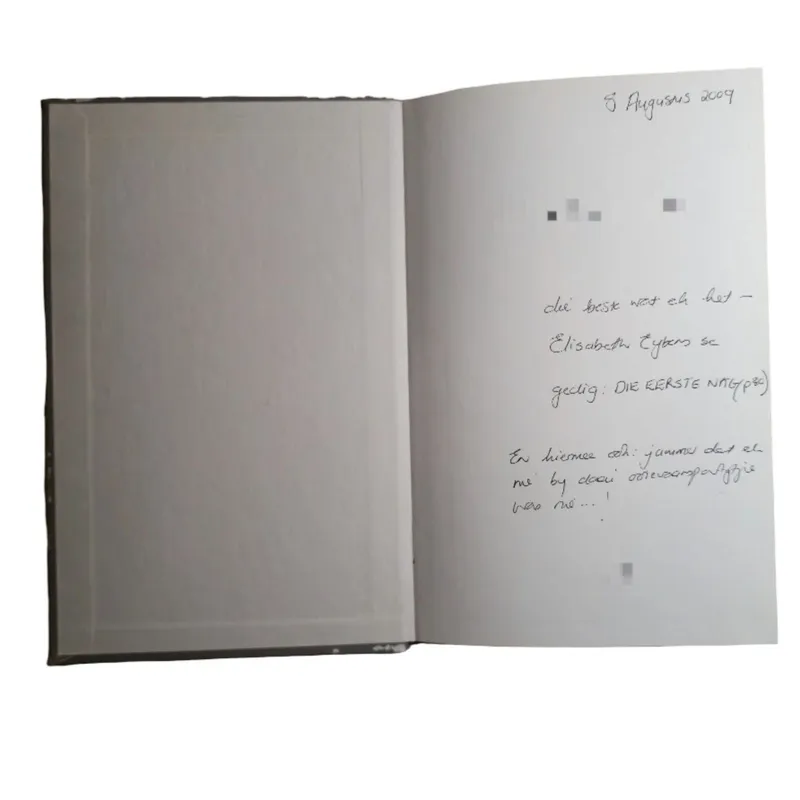 8 Augustus 2009
die beste wat ek het –
Elisabeth Eybers se
gedig: DIE EERSTE NAG (p
En hiermee ook: jammer dat ek
nie by daai ooievaarspartytjie
was nie...!